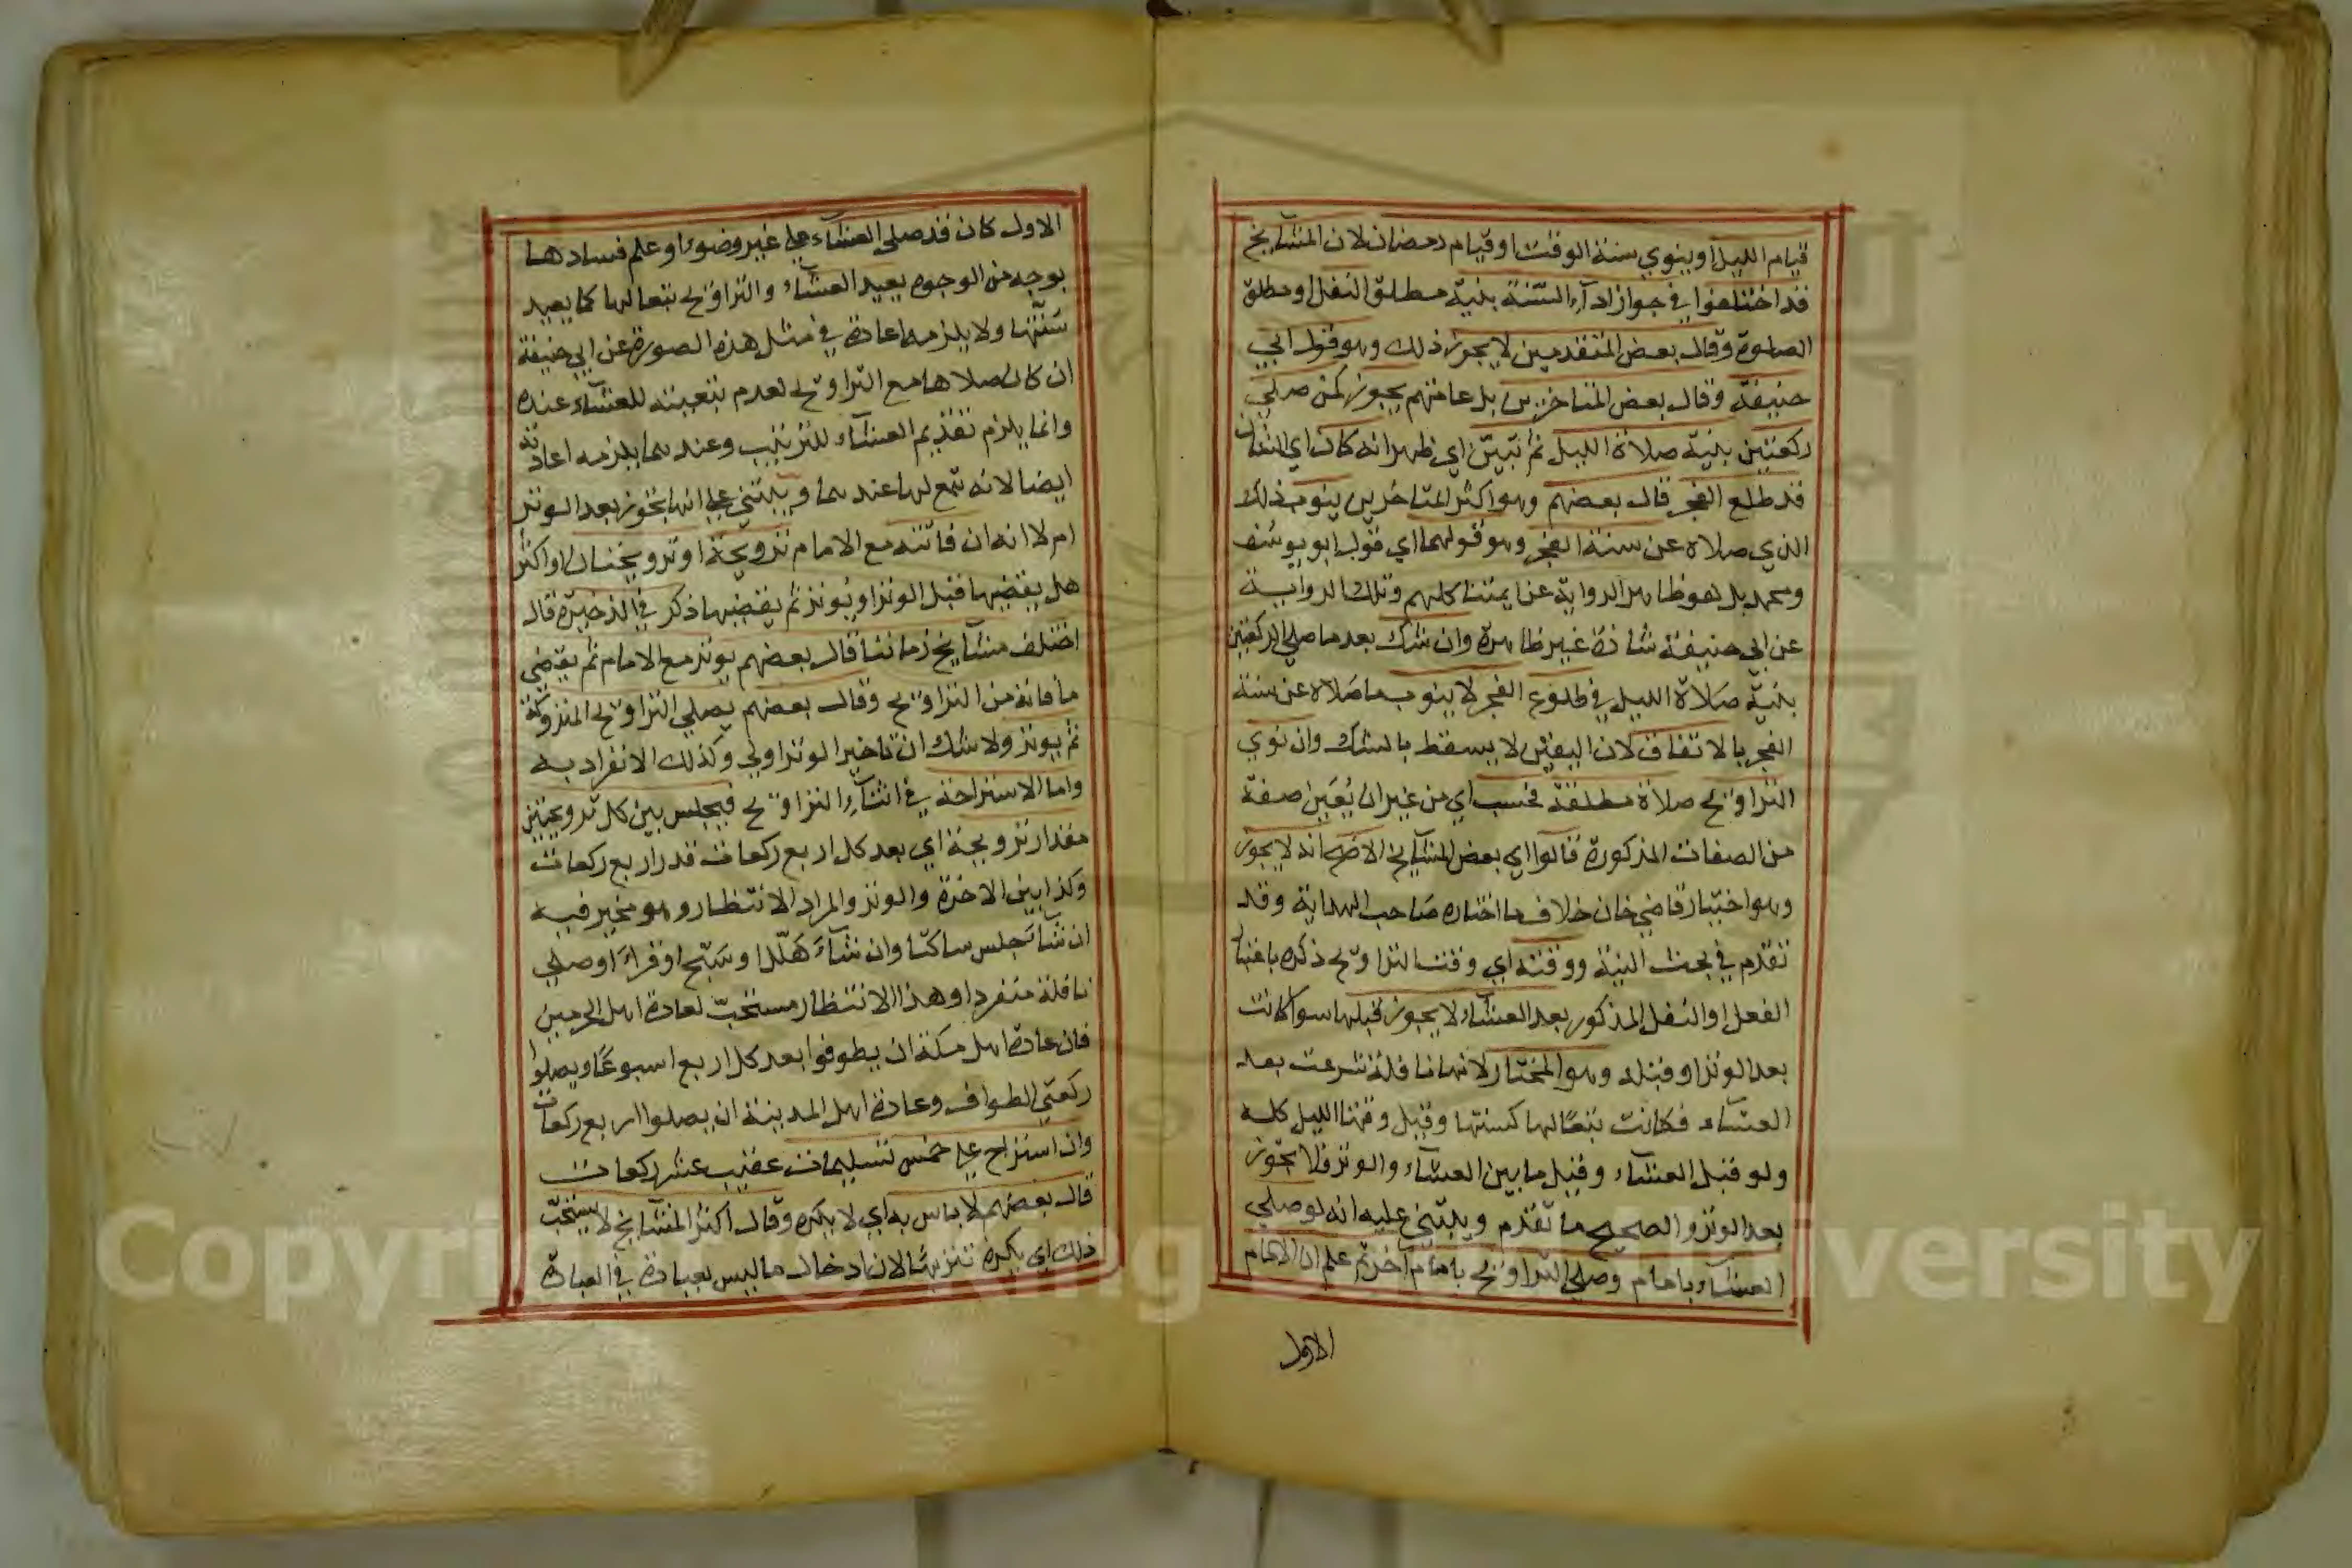 قيام الليل او ينوي سنة الوقت او قيام رمضان لان المشايخ
قد اختلفوا في جواز اداء السّنة بنيّة مطلق النفل او مطلق
الصلوة وقال بعض المتقدمين لا يجوز ذلك وهو قول ابي
حنيفة وقال بعض المتاخرين بل عامتهم يجوز كمن صلي
ركعتين بنيّة صلاة الليل ثم تبيّن اي ظهر انه كان اي الشان
قد طلع الفجر قال بعضهم وهو اكثر المتاخرين ينوب ذلك
الذي صلاه عن سنة الفجر وهو قولهما اي قول ابو يوسف
ومحمد بل هو ظاهر الرواية عن ايمتنا كلهم وتلك الرواية
عن ابي حنيفة شاذة غير ظاهرة وان شك بعد ما صلي الركعتين
بنيّة صلاة الليل في طلوع الفجر لا ينوب ما صلاه عن سنة
الفجر بالاتفاق لان اليقين لا يسقط بالشك وان نوي
التراويح صلاة مطلقة فحسب اي من غير ان يُعَيِّن صفة
من الصفات المذكورة قالوا اي بعض المشايخ الاصح انه لا يجوز
وهو اختيار قاضي خان خلاف ما اختاره صاحب الهداية وقد
تقدم في بحث النية ووقته اي وقت التراويح ذكره باعتبار
الفعل او النفل المذكور بعد العشاء لا يجوز قبلها سوا كانت
بعد الوتر او قبله وهو المختار لانها نافلة شرعت بعد
العشاء فكانت تبعًا لها كسنتها وقيل وقتها الليل كله
ولو قبل العشاء وقيل ما بين العشاء والوتر فلا تجوز
بعد الوتر والصحيح ما تقدم ويبتني عليه انه لو صلي
العشاء بامام وصلي التراويح بامام اخر ثم علم ان الامام
الاول
الاول كان قد صلي العشاء علي غير وضوء او علم فسادها
بوجه من الوجوه يعيد العشاء والتراويح تبعا لها كما يعيد
سُنّتها ولا يلزمه اعادة في مثل هذه الصورة عن ابي حنيفة
ان كان صلاها مع التراويح لعدم تبعيته للعشاء عنده
وانما يلزم تقديم العشاء للترتيب وعندهما يلزمه اعادته
ايضا لانه تبع لها عندهما ويبتني علي انها تجوز بعد الوتر
ام لا انه ان فاتته مع الامام ترويحة او ترويحتان او اكثر
هل يقضيها قبل الوتر او يُوتر ثم يقضيها ذكر في الذخيرة قال
اختلف مشايخ زماننا قال بعضهم يوتر مع الامام ثم يقضي
ما فاته من التراويح وقال بعضهم يصلي التراويح المتروكة
ثم يوتر ولا شك ان تاخير الوتر اولي وكذلك الانفراد به
واما الاستراحة في اثناء التراويح فيجلس بين كل ترويحتين
مقدار ترويحة اي بعد كل اربع ركعات قدر اربع ركعات
وكذا بين الاخرة والوتر والمراد الانتظار وهو مخير فيه
ان شاء جلس ساكتا وان شاء هَلّل او سَبّح او قرأ او صلي
نافلة منفردا وهذا الانتظار مستحبّ لعادة اهل الحرمين
فان عادة اهل مكة ان يطوفوا بعد كل اربع اسبوعًا ويصلوا
ركعتي الطواف وعادة اهل المدينة ان يصلوا اربع ركعات
وان استراح علي خمس تسليمات عقيب عشر ركعات
قال بعضهم لا باس به اي لا يكره وقال اكثر المشايخ لا يستحبّ
ذلك اي يكره تنزيهًا لان ادخال ما ليس بعبادة في العبادة